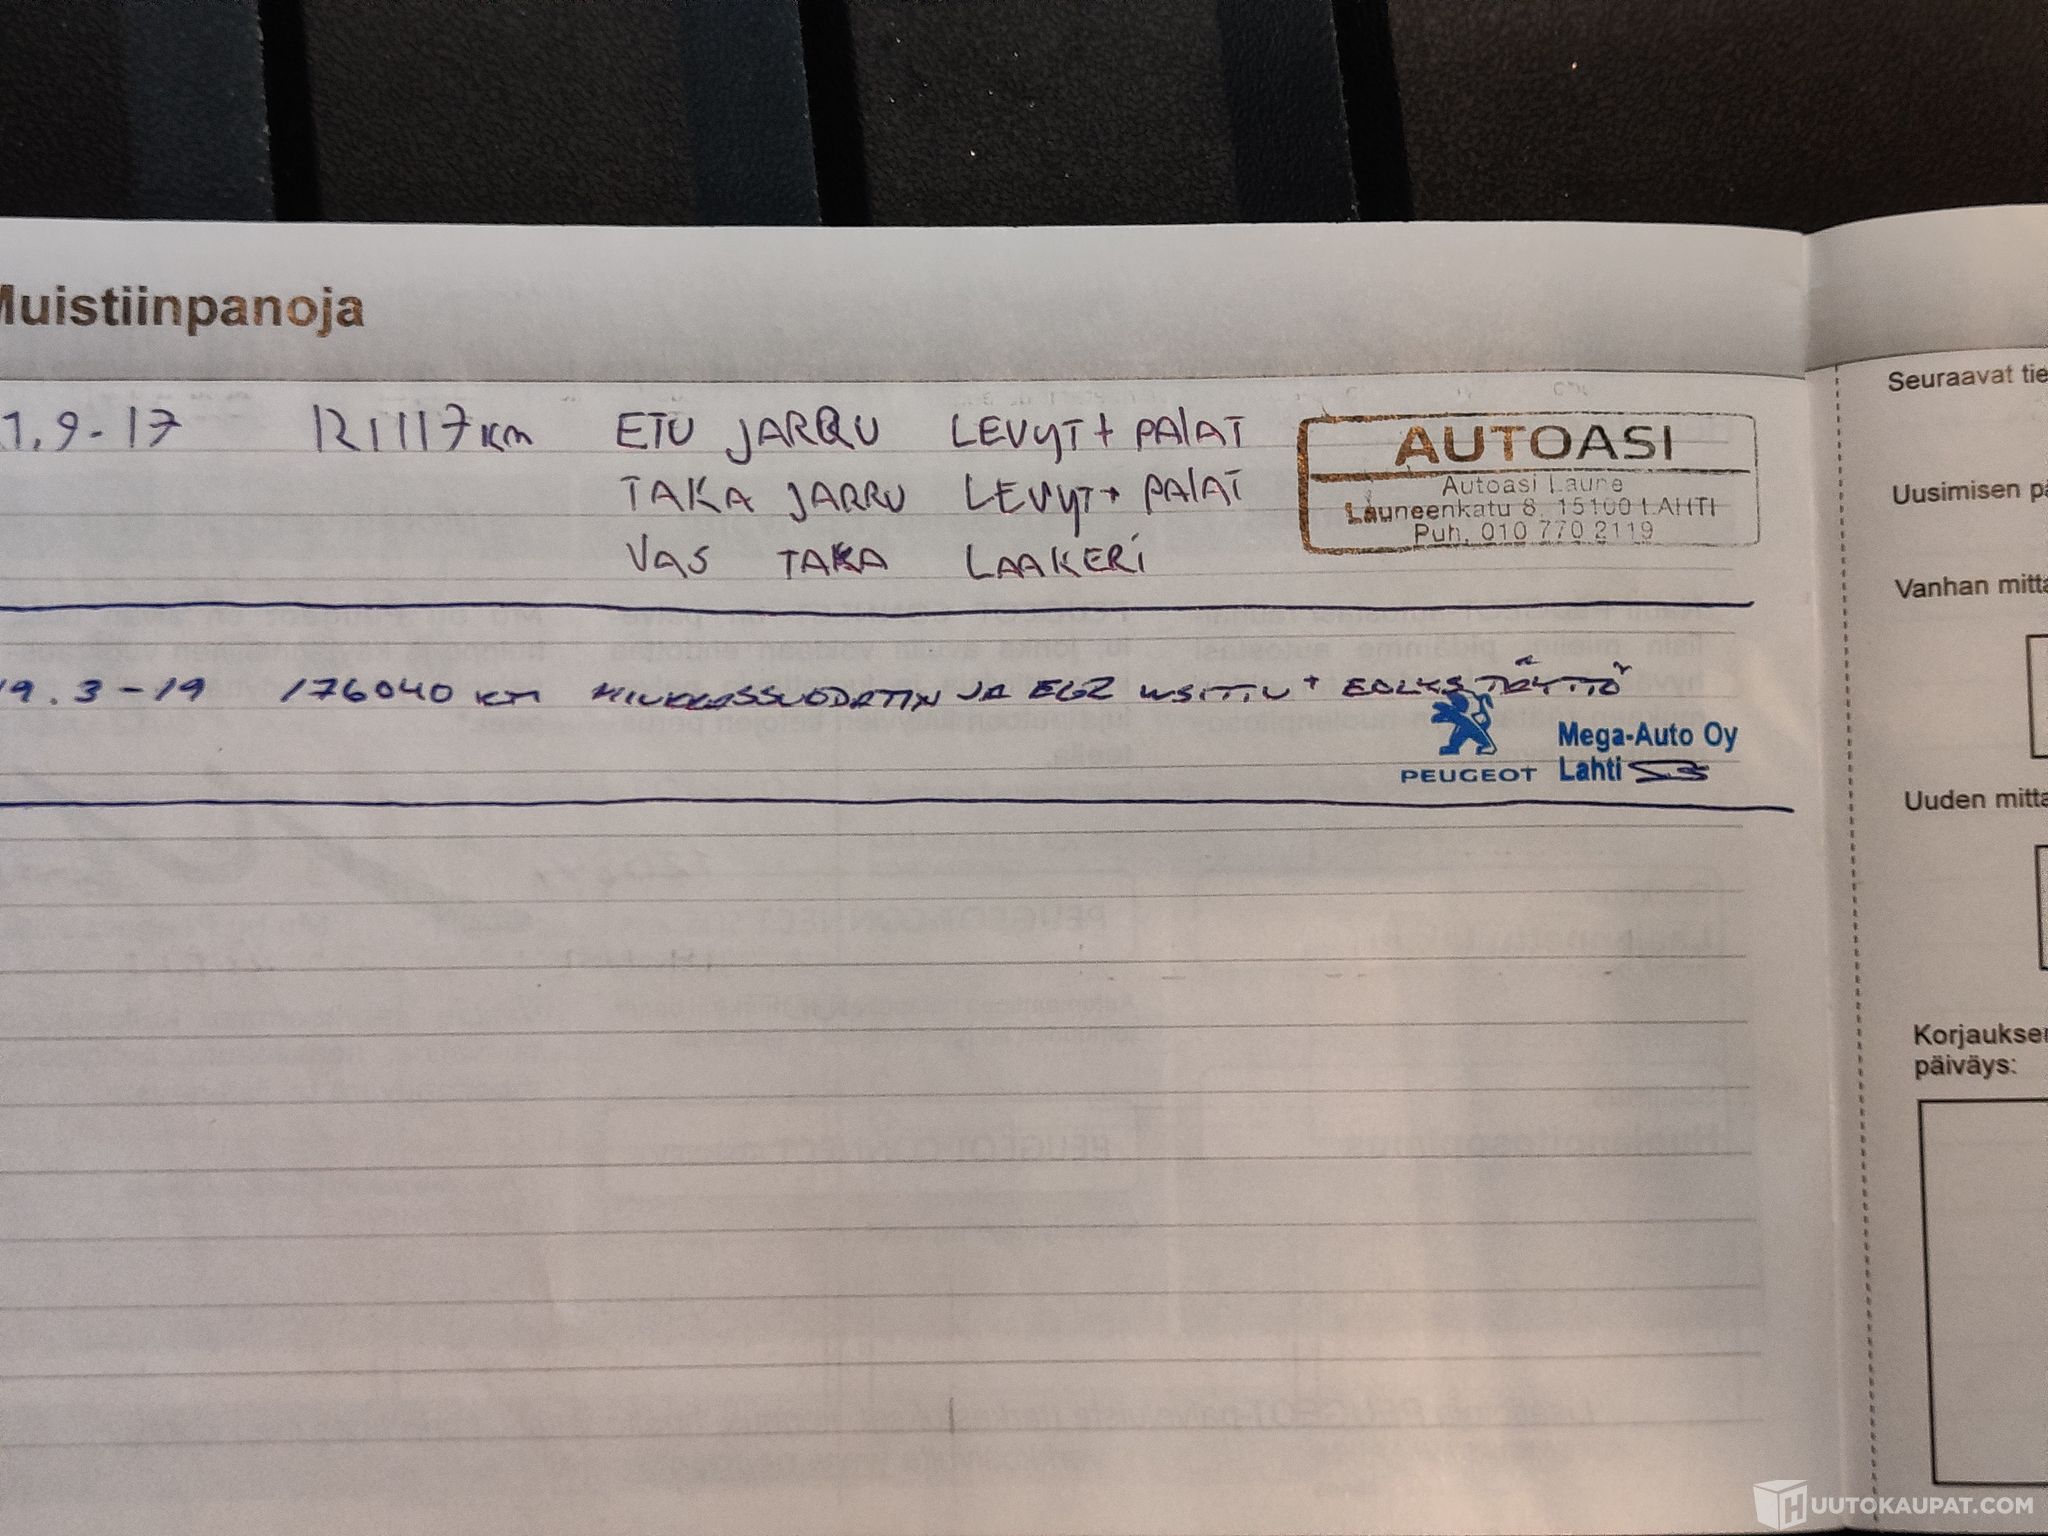 Muistiinpanoja
1.9-17 121117 km ETU JARRU LEVYT + PALAT
TAKA JARRU LEVYT + PALAT
VAS TAKA LAAKERI
AUTOASI
Autoasi Laune
Launeenkatu 8, 15100 LAHTI
Puh. 010 770 2119
19.3-19 176040 km HIUKKASSUODATIN JA EGR UUSITTU + EOLYS TÄYTTÖ
PEUGEOT
Mega-Auto Oy
Lahti
Seuraavat tie
Uusimisen pä
Vanhan mitta
Uuden mitta
Korjauksen
päiväys:
HUUTOKAUPAT.COM